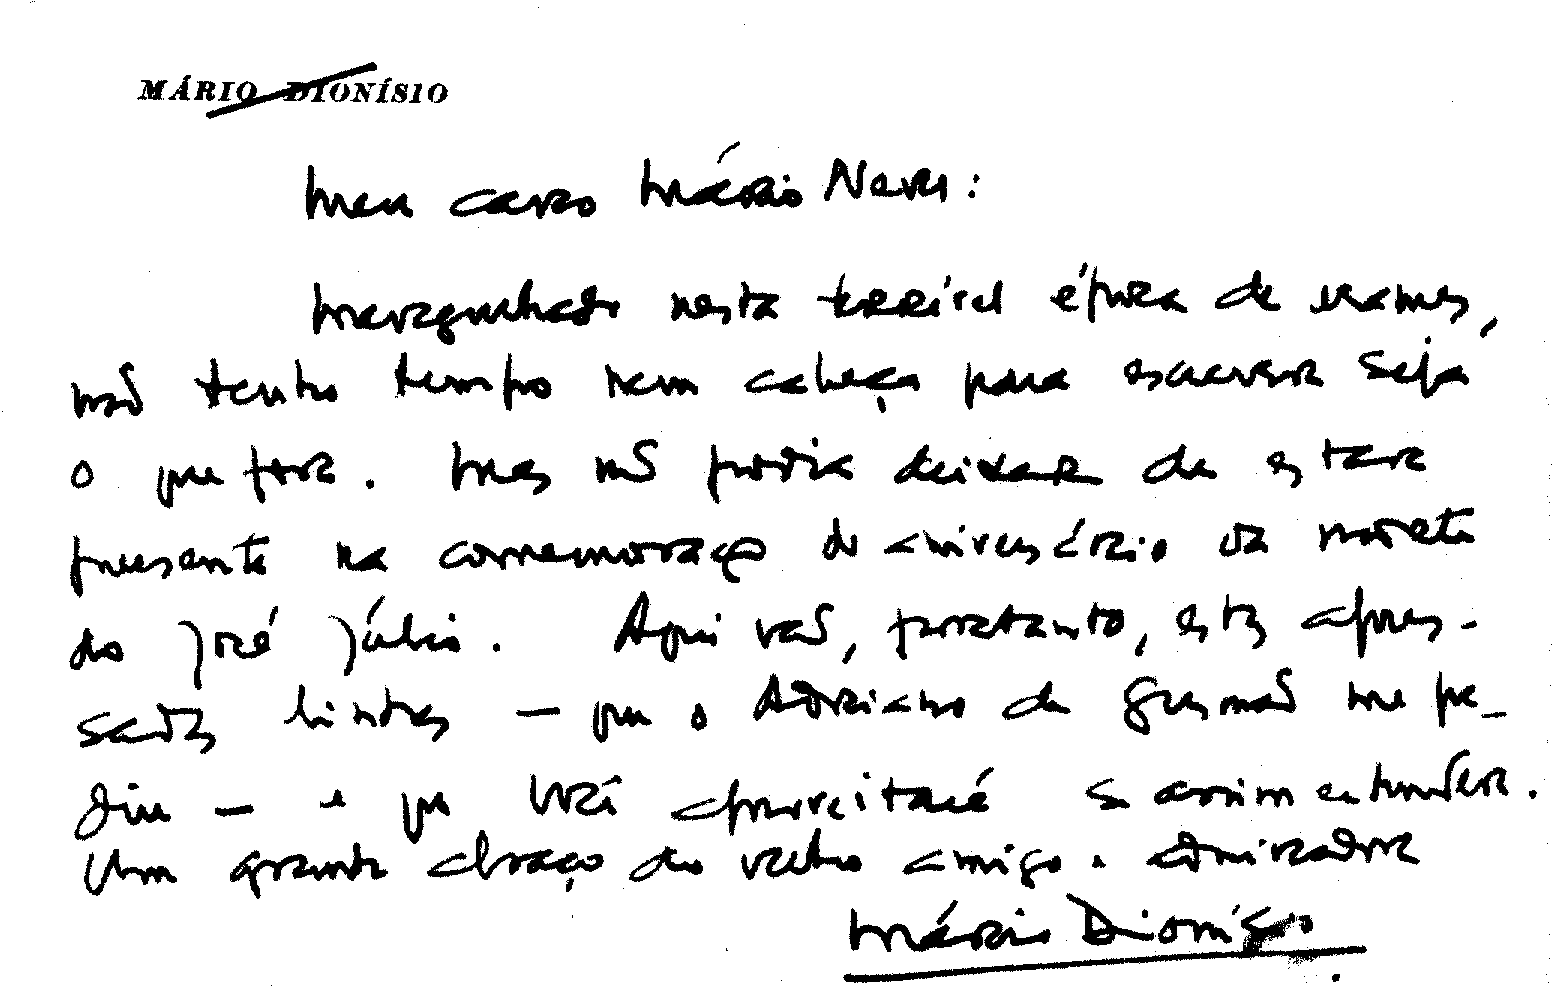 MÁRIO DIONÍSIO
Meu caro Mário Neves:
Mergulhado nesta terrível época de exames,
não tenho tempo nem cabeça para escrever seja
o que for. Mas não podia deixar de estar
presente na comemoração do aniversário da morte
do José Júlio. Aqui vão, portanto, estas apres-
sadas linhas — que o Adriano de Gusmão me pe-
diu — e que você aproveitará se assim entender.
Um grande abraço do velho amigo e admirador
Mário Dionísio